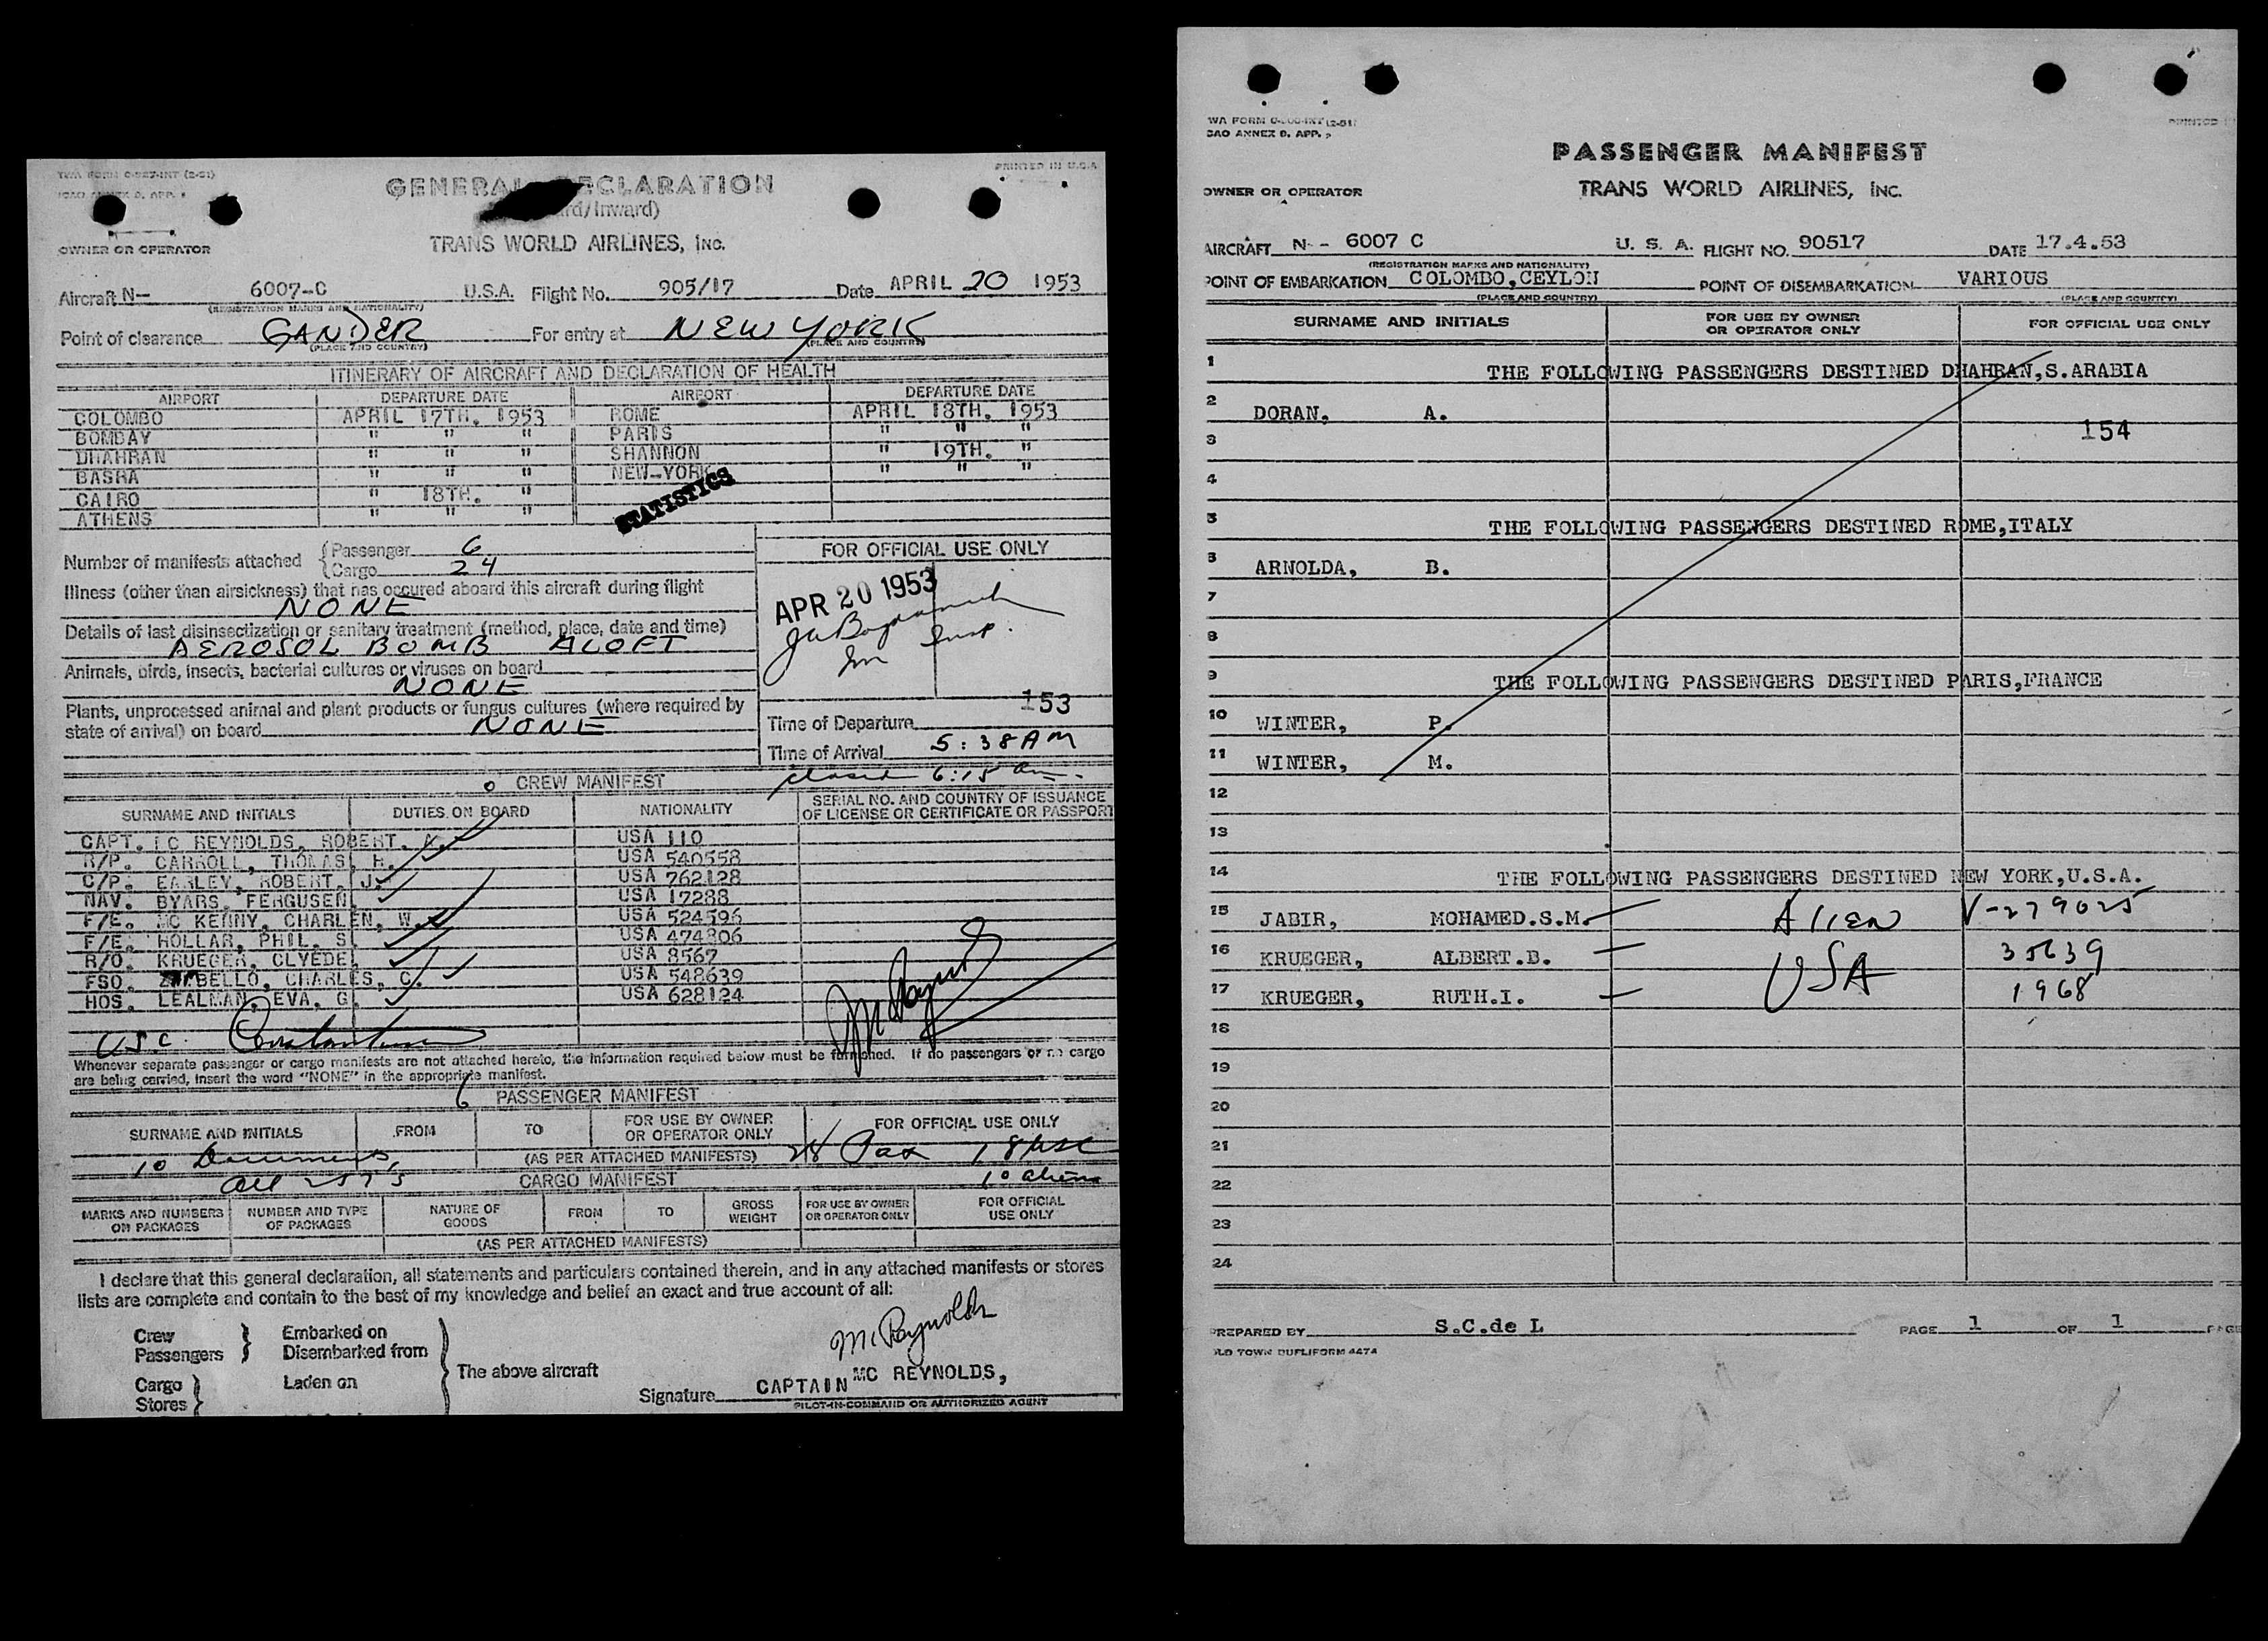 TWA FORM O-027-INT (2-51)
PRINTED IN U.S.A
ICAO ANNEX 9, APP. 1
GENERAL DECLARATION
ard/Inward)
OWNER OR OPERATOR
TRANS WORLD AIRLINES, INC.
Aircraft N— 6007-C U.S.A. Flight No. 905/17 Date APRIL 20 1953
(REGISTRATION MARKS AND NATIONALITY)
Point of clearance GANDER For entry at NEW YORK
(PLACE AND COUNTRY) (PLACE AND COUNTRY)
ITINERARY OF AIRCRAFT AND DECLARATION OF HEALTH
AIRPORT DEPARTURE DATE AIRPORT DEPARTURE DATE
COLOMBO APRIL 17TH. 1953 ROME APRIL 18TH. 1953
BOMBAY " " " PARIS " " "
DHAHRAN " " " SHANNON " 19TH. "
BASRA " " " NEW-YORK " " "
CAIRO " 18TH. "
ATHENS " " "
STATISTICS
Number of manifests attached { Passenger 6
Cargo 24
FOR OFFICIAL USE ONLY
Illness (other than airsickness) that has occured aboard this aircraft during flight
NONE
APR 20 1953
Details of last disinsectization or sanitary treatment (method, place, date and time)
AEROSOL BOMB ALOFT
Imm Insp.
Animals, birds, insects, bacterial cultures or viruses on board
NONE
Plants, unprocessed animal and plant products or fungus cultures (where required by
state of arrival) on board NONE
153
Time of Departure
Time of Arrival 5:38 AM
closed 6:15 am
0 CREW MANIFEST
SURNAME AND INITIALS DUTIES ON BOARD NATIONALITY SERIAL NO. AND COUNTRY OF ISSUANCE OF LICENSE OR CERTIFICATE OR PASSPORT
CAPT. MC REYNOLDS, ROBERT. N. USA 110
R/P. CARROLL, THOMAS, H. USA 540558
C/P. EARLEY, ROBERT, J. USA 762128
NAV. BYARS, FERGUSEN USA 17288
F/E. MC KENNY, CHARLEN, W. USA 524596
F/E. HOLLAR, PHIL. S. USA 474806
R/O. KRUEGER, CLYEDE USA 8567
FSO. ZAMBELLO, CHARLES, C. USA 548639
HOS. LEALMAN, EVA, G. USA 628124
U.S.C.
Whenever separate passenger or cargo manifests are not attached hereto, the information required below must be furnished. If no passengers or no cargo
are being carried, insert the word "NONE" in the appropriate manifest.
6 PASSENGER MANIFEST
SURNAME AND INITIALS FROM TO FOR USE BY OWNER OR OPERATOR ONLY FOR OFFICIAL USE ONLY
10 Documents, (AS PER ATTACHED MANIFESTS) 28 Pax 18 USC
all 257's CARGO MANIFEST 10 aliens
MARKS AND NUMBERS ON PACKAGES NUMBER AND TYPE OF PACKAGES NATURE OF GOODS FROM TO GROSS WEIGHT FOR USE BY OWNER OR OPERATOR ONLY FOR OFFICIAL USE ONLY
(AS PER ATTACHED MANIFESTS)
I declare that this general declaration, all statements and particulars contained therein, and in any attached manifests or stores
lists are complete and contain to the best of my knowledge and belief an exact and true account of all:
Crew Embarked on
Passengers Disembarked from
The above aircraft
Cargo Laden on
Stores
McReynolds
Signature CAPTAIN MC REYNOLDS,
PILOT-IN-COMMAND OR AUTHORIZED AGENT
WA FORM
CAO ANNEX 9, APP. 2
PRINTED
PASSENGER MANIFEST
OWNER OR OPERATOR
TRANS WORLD AIRLINES, INC.
AIRCRAFT N - - 6007 C U. S. A. FLIGHT NO. 90517 DATE 17.4.53
(REGISTRATION MARKS AND NATIONALITY)
POINT OF EMBARKATION COLOMBO,CEYLON POINT OF DISEMBARKATION VARIOUS
(PLACE AND COUNTRY) (PLACE AND COUNTRY)
SURNAME AND INITIALS FOR USE BY OWNER OR OPERATOR ONLY FOR OFFICIAL USE ONLY
1 THE FOLLOWING PASSENGERS DESTINED DHAHRAN,S.ARABIA
2 DORAN, A.
3 154
4
5 THE FOLLOWING PASSENGERS DESTINED ROME,ITALY
6 ARNOLDA, B.
7
8
9 THE FOLLOWING PASSENGERS DESTINED PARIS,FRANCE
10 WINTER, P.
11 WINTER, M.
12
13
14 THE FOLLOWING PASSENGERS DESTINED NEW YORK,U.S.A.
15 JABIR, MOHAMED.S.M. Alien V-279025
16 KRUEGER, ALBERT.B. USA 35639
17 KRUEGER, RUTH.I. 1968
18
19
20
21
22
23
24
PREPARED BY S.C.de L PAGE 1 OF 1 PAGE
OLD TOWN DUPLIFORM 4474